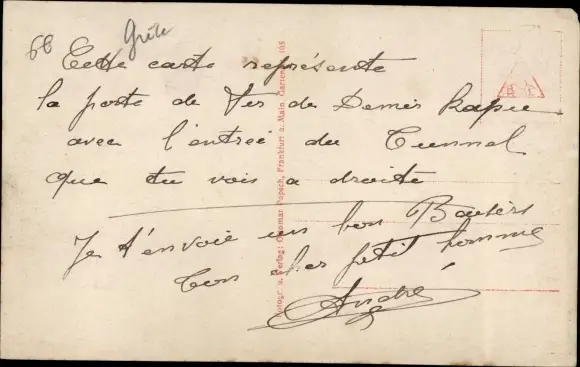 66 Grèce
Cette carte représente
la porte de Fer de Demir Kapu
avec l'entrée du Tunnel
que tu vois a droite
Je t'envoie un bon Baisers
Ton cher petit homme
André
Photogr. u. Verlag: Ottomar Popsch, Frankfurt a. Main, Gartenstr. 105